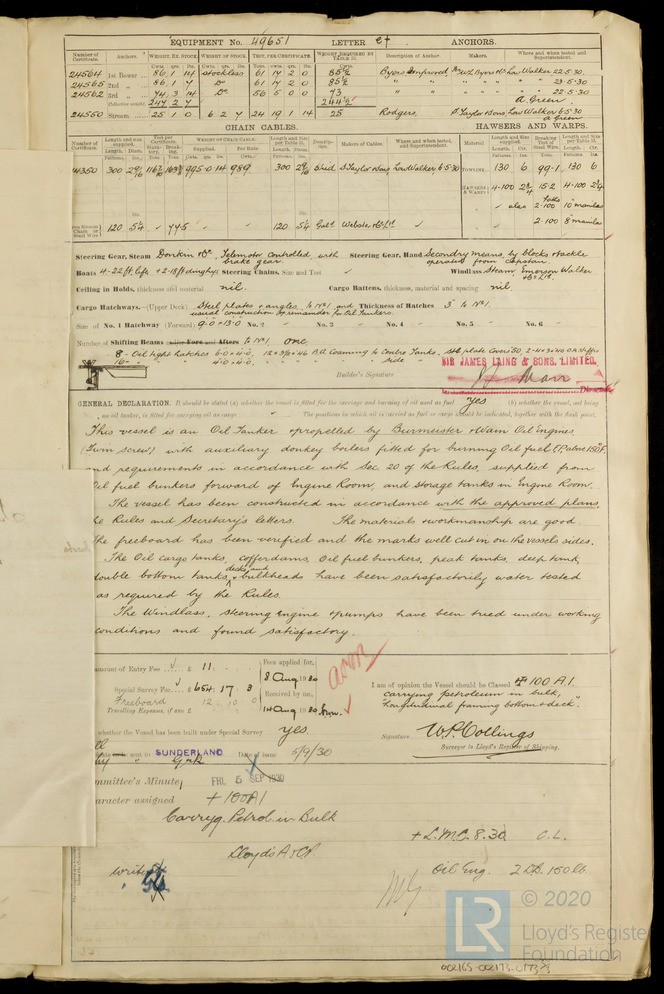 EQUIPMENT No. 49651 LETTER et ANCHORS.
Number of Certificate. Anchors. WEIGHT, EX. STOCK WEIGHT OF STOCK. TEST, PER CERTIFICATE. WEIGHT REQUIRED BY TABLE 31. Description of Anchor. Makers. Where and when tested and Superintendent.
Cwts. qrs. lbs. Cwts. qrs. lbs. Tons. cwts. qrs. lbs. Cwts.
24564 1st Bower 86 1 14 Stockless 61 17 2 0 85½ Byers Improved W. L. Byers & Co Low Walker 22.5.30.
24565 2nd " 86 1 7 Do 61 17 2 0 85½ " " " " " 23.5.30
24562 3rd " 74 3 14 Do 56 5 0 0 73 " " " " " 22.5.30
Collective weight 247 2 7 244½ A. Green.
24550 Stream 25 1 0 6 2 7 24 19 1 14 25 Rodgers. S. Taylor & Sons, Low Walker 6.5.30
A Green
CHAIN CABLES. HAWSERS AND WARPS.
4350 300 995-0-14 989 300 Stud S. Taylor & Sons Low Walker 6.5.30 TOWLINE 130 6 99.1 130 6
HAWSERS & WARPS 4-100 2¾ 15.2 4-100 2¾
" also 2-100 10" manila
2-100 8" manila
120 5¼ 775 120 5¼ Galv Webster & Co Ltd
Steering Gear, Steam Donkin & Co. Telemotor controlled, with brake gear. Steering Gear, Hand Secondry means, by blocks & tackle operated from capstan.
Boats 4-22 ft. life, + 2-18 ft dinghys Steering Chains, Size and Test ✓ Windlass Steam, Emerson Walker & Co Ltd.
Ceiling in Holds, thickness and material nil. Cargo Battens, thickness, material and spacing nil
Cargo Hatchways.—(Upper Deck) Steel plates & angles, to No 1, and Thickness of Hatches 3" to No 1.
usual construction to remainder for Oil Tankers.
Size of No. 1 Hatchway (Forward) 9-0 × 13-0 No. 2 No. 3 No. 4 No. 5 No. 6
Number of Shifting Beams and/or Fore and Afters to No 1, one
8 - Oil tight hatches 6-0 × 4-0
16 - " " 4-0 × 4-0
SIR JAMES LAING & SONS, LIMITED.
Builder's Signature
Director
GENERAL DECLARATION. It should be stated (a) whether the vessel is fitted for the carriage and burning of oil used as fuel yes (b) whether the vessel, not being
an oil tanker, is fitted for carrying oil as cargo " The positions in which oil is carried as fuel or cargo should be indicated, together with the flash point.
This vessel is an Oil Tanker & propelled by Burmeister & Wain Oil Engines
(Twin screw) with auxiliary donkey boilers fitted for burning Oil fuel (F.P. above 150°F.
and requirements in accordance with Sec. 20 of the Rules, supplied from
Oil fuel bunkers forward of Engine Room, and storage tanks in Engine Room.
The vessel has been constructed in accordance with the approved plans,
the Rules and Secretary's letters. The materials & workmanship are good.
The freeboard has been verified and the marks well cut in on the vessels sides.
The Oil cargo tanks, cofferdams, Oil fuel bunkers, peak tanks, deep tank,
double bottom tanks, decks, and & bulkheads have been satisfactorily water tested
as required by the Rules.
The Windlass, steering engine & pumps have been tried under working
conditions and found satisfactory.
Amount of Entry Fee £ 11 Fees applied for,
8 Aug 1930
Special Survey Fee £ 654 . 17 3 Received by me,
Freeboard 12 10 0
Travelling Expenses, if any £ 14 Aug 1930
I am of opinion the Vessel should be Classed ✠ 100 A1.
"carrying petroleum in bulk,"
"Longitudinal framing bottom & deck."
whether the Vessel has been built under Special Survey yes.
Signature W.P. Collings
Surveyor to Lloyd's Register of Shipping.
sent to SUNDERLAND Date of issue 5/9/30
Committee's Minute FRI. 5 SEP 1930
Character assigned + 100A1
Carryg. Petrol. in Bulk
+ L.M.C. 8.30 C.L.
Lloyd's A & CP.
Oil Eng. 2 D.B. 150 lb.
write
© 2020
LR
Lloyd's Register
Foundation
002165-002173-0173